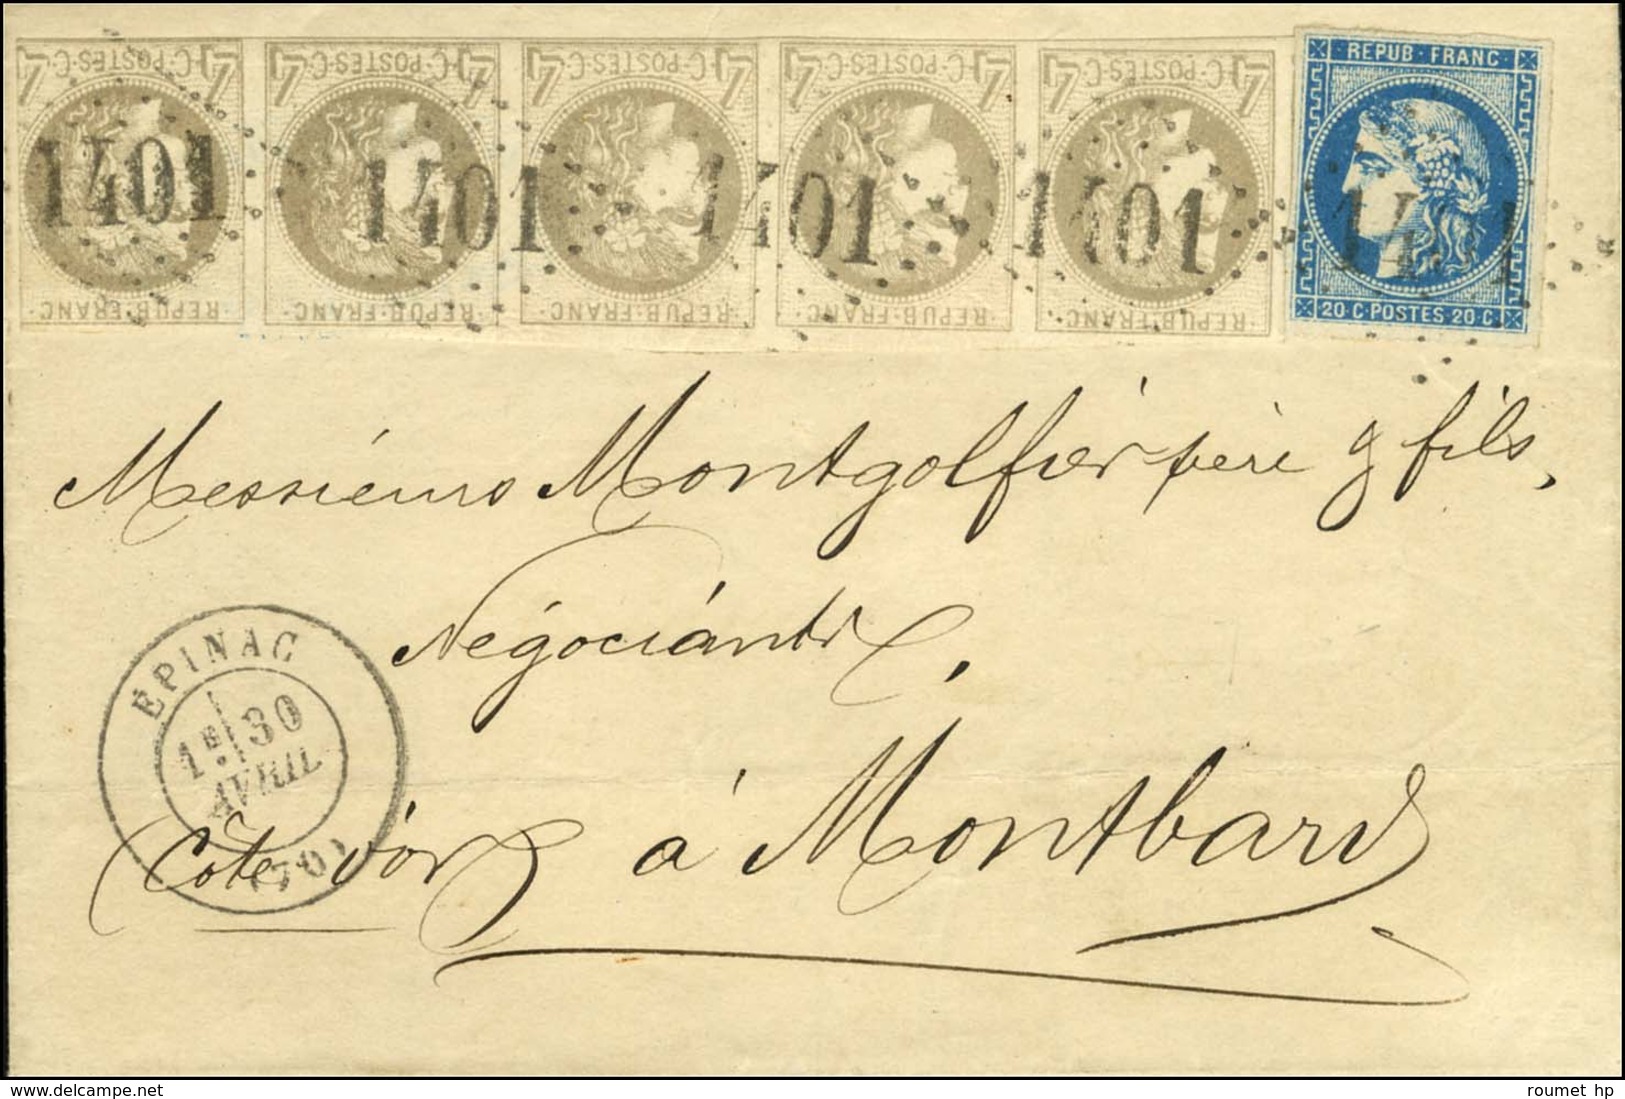 4 C·POSTES·C 4 4 C·POSTES·C 4 4 C·POSTES·C 4 4 C·POSTES·C 4 4 C·POSTES·C 4 · REPUB · FRANC ·
1401 1401 1401 1401 1401
REPUB·FRANC· REPUB·FRANC· REPUB·FRANC· REPUB·FRANC· REPUB·FRANC· 20·C·POSTES·20·C
Messieurs Montgolfier père & fils,
Négociants,
EPINAC
1E 30
AVRIL
(70)
Côte d'or à Montbard
www.delcampe.net
roumet hp